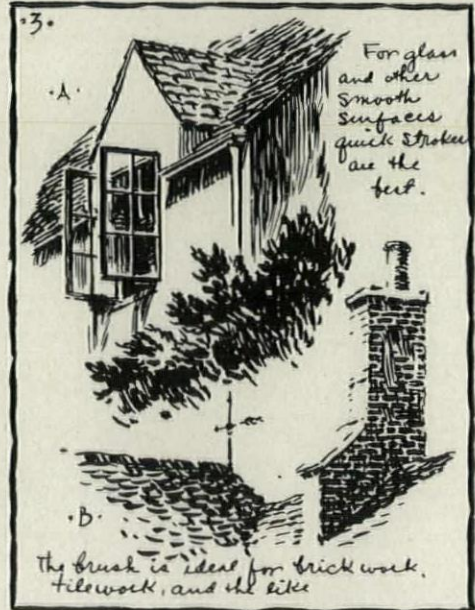 ·3·
·A·
For glass
and other
smooth
surfaces
quick strokes
are the
best.
·B·
The brush is ideal for brickwork,
tilework, and the like